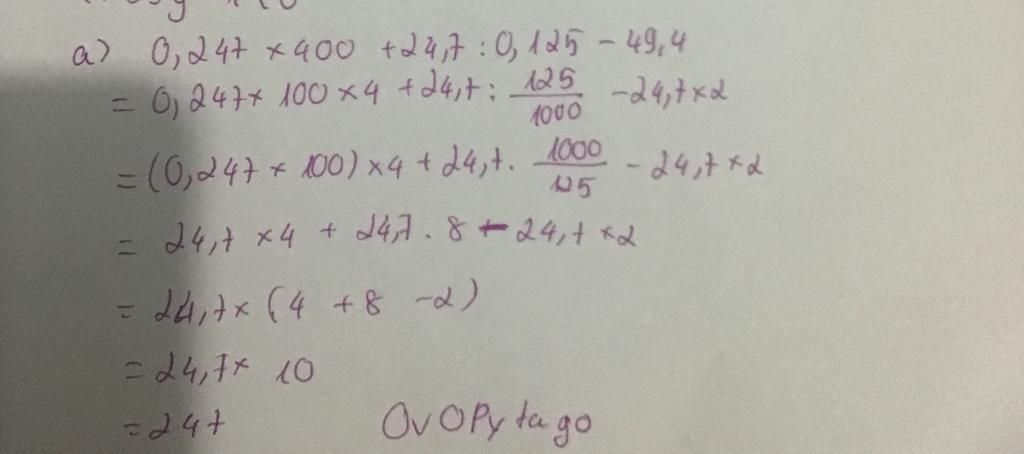 a) 0,247 × 400 + 24,7 : 0,125 - 49,4
= 0,247 × 100 × 4 + 24,7 : 125/1000 - 24,7 × 2
= (0,247 × 100) × 4 + 24,7 . 1000/125 - 24,7 × 2
= 24,7 × 4 + 24,7 . 8 - 24,7 × 2
= 24,7 × (4 + 8 - 2)
= 24,7 × 10
= 247 OvOPytago